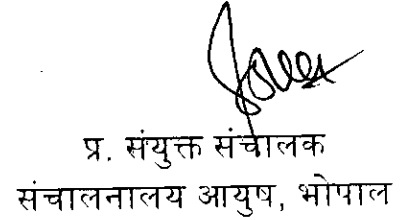 प्र. संयुक्त संचालक
संचालनालय आयुष, भोपाल